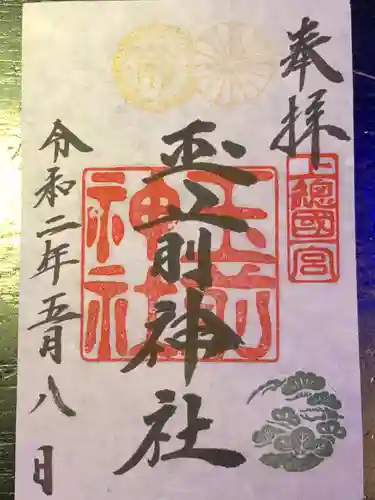 奉拝
上總國一宮
玉前神社
玉前神社
令和二年五月八日